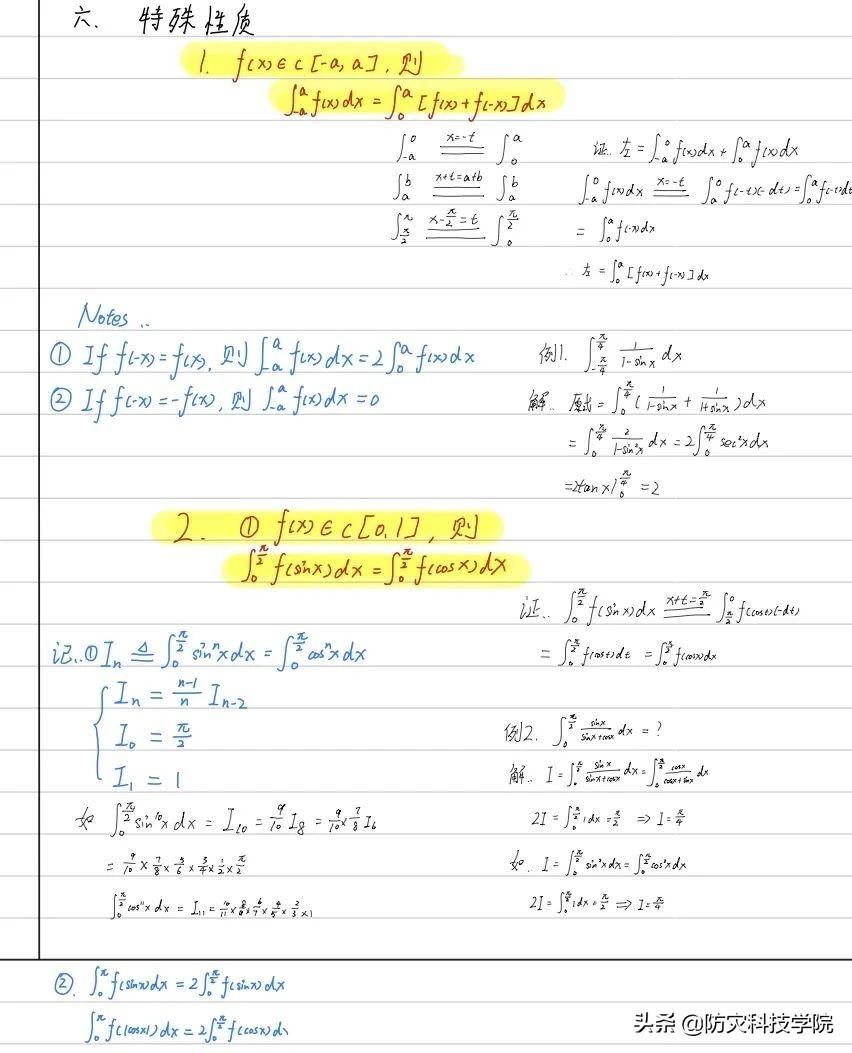 六、特殊性质
1. f(x)∈C[-a,a],则
∫_{-a}^{a} f(x)dx = ∫_0^a [f(x)+f(-x)]dx
∫_{-a}^0 \xlongequal{x=-t} ∫_0^a
∫_a^b \xlongequal{x+t=a+b} ∫_a^b
∫_{π/2}^π \xlongequal{x-π/2=t} ∫_0^{π/2}
证:左=∫_{-a}^0 f(x)dx+∫_0^a f(x)dx
∫_{-a}^0 f(x)dx \xlongequal{x=-t} ∫_a^0 f(-t)(-dt)=∫_0^a f(-t)dt
= ∫_0^a f(-x)dx
∴ 左=∫_0^a [f(x)+f(-x)]dx
Notes:
① If f(-x)=f(x),则∫_{-a}^a f(x)dx=2∫_0^a f(x)dx
② If f(-x)=-f(x),则∫_{-a}^a f(x)dx=0
例1. ∫_{-π/4}^{π/4} 1/(1-sinx) dx
解:原式=∫_0^{π/4} (1/(1-sinx) + 1/(1+sinx))dx
= ∫_0^{π/4} 2/(1-sin²x) dx = 2∫_0^{π/4} sec²x dx
=2tanx|_0^{π/4} = 2
2. ① f(x)∈C[0,1],则
∫_0^{π/2} f(sinx)dx = ∫_0^{π/2} f(cosx)dx
证:∫_0^{π/2} f(sinx)dx \xlongequal{x+t=π/2} ∫_{π/2}^0 f(cost)(-dt)
= ∫_0^{π/2} f(cost)dt = ∫_0^{π/2} f(cosx)dx
记:① I_n ≜ ∫_0^{π/2} sin^n x dx = ∫_0^{π/2} cos^n x dx
I_n = (n-1)/n I_{n-2}
I_0 = π/2
I_1 = 1
如 ∫_0^{π/2} sin^{10} x dx = I_{10} = 9/10 I_8 = 9/10 × 7/8 I_6
= 9/10 × 7/8 × 5/6 × 3/4 × 1/2 × π/2
∫_0^{π/2} cos^{11} x dx = I_{11} = 10/11 × 8/9 × 6/7 × 4/5 × 2/3 × 1
例2. ∫_0^{π/2} sinx/(sinx+cosx) dx = ?
解:I=∫_0^{π/2} sinx/(sinx+cosx) dx=∫_0^{π/2} cosx/(cosx+sinx) dx
2I = ∫_0^{π/2} 1dx = π/2 ⇒ I=π/4
如:I=∫_0^{π/2} sin²x dx=∫_0^{π/2} cos²x dx
2I=∫_0^{π/2} 1dx=π/2 ⇒ I=π/4
②. ∫_0^π f(sinx)dx = 2∫_0^{π/2} f(sinx)dx
∫_0^π f(|cosx|)dx = 2∫_0^{π/2} f(cosx)dx
头条 @防灾科技学院